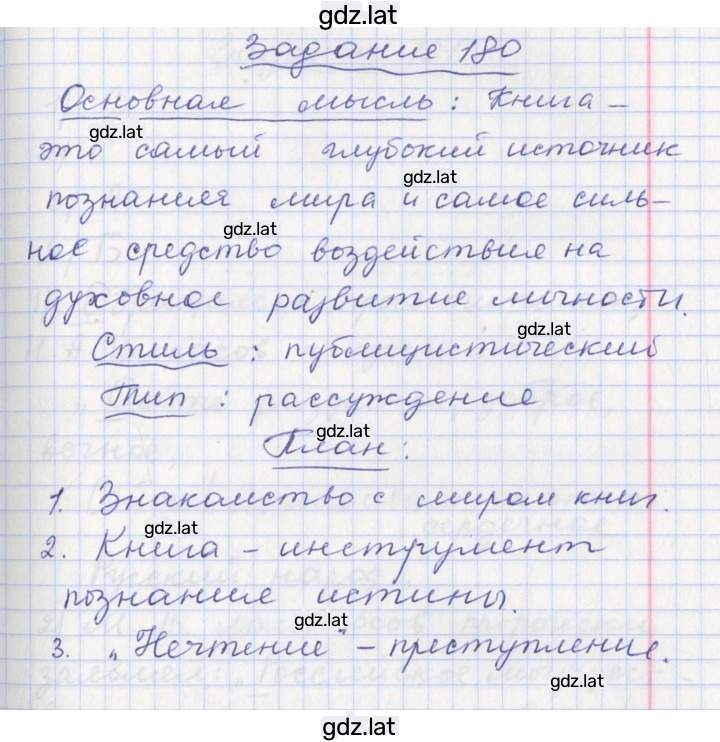 gdz.lat
Задание 180
Основная мысль: Книга –
gdz.lat
это самый глубокий источник
gdz.lat
познания мира и самое силь-
gdz.lat
ное средство воздействия на
духовное развитие личности.
gdz.lat
Стиль: публицистический
Тип: рассуждение
gdz.lat
План:
1. Знакомство с миром книг.
gdz.lat
2. Книга – инструмент
познание истины.
gdz.lat
3. „Нечтение“ – преступление.
gdz.lat
gdz.lat